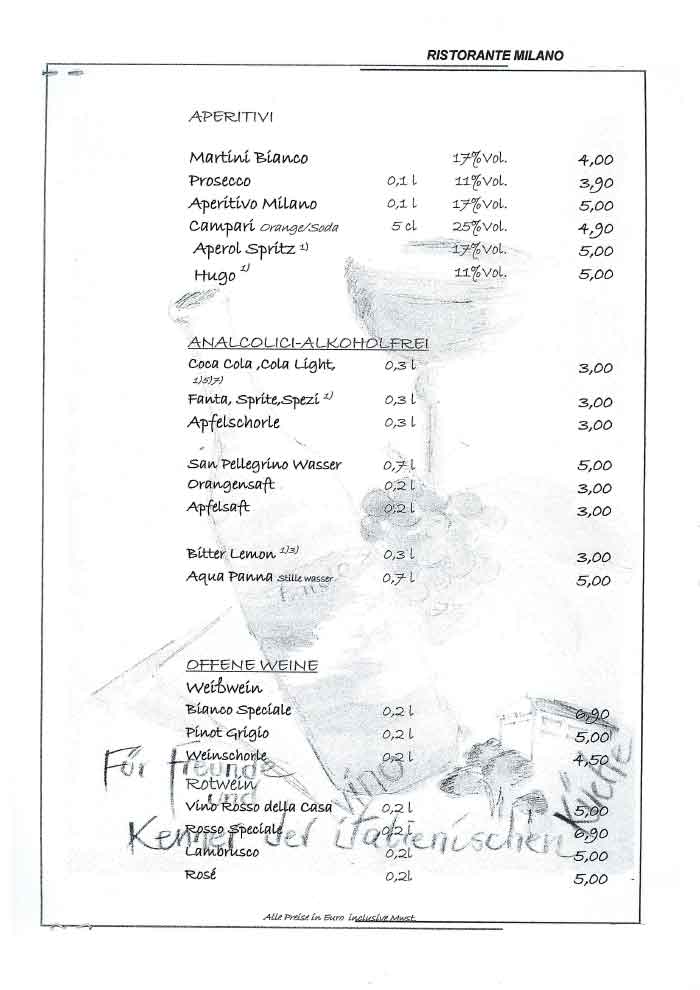 RISTORANTE MILANO
APERITIVI
Martini Bianco 17%Vol. 4,00
Prosecco 0,1 l 11%Vol. 3,90
Aperitivo Milano 0,1 l 17%Vol. 5,00
Campari Orange/Soda 5 cl 25%Vol. 4,90
Aperol Spritz 1) 17%Vol. 5,00
Hugo 1) 11%Vol. 5,00
ANALCOLICI-ALKOHOLFREI
Coca Cola ,Cola Light, 0,3 l 3,00
1)5)7)
Fanta, Sprite,Spezi 1) 0,3 l 3,00
Apfelschorle 0,3 l 3,00
San Pellegrino Wasser 0,7 l 5,00
Orangensaft 0,2 l 3,00
Apfelsaft 0,2 l 3,00
Bitter Lemon 1)3) 0,3 l 3,00
Aqua Panna Stille wasser 0,7 l 5,00
OFFENE WEINE
Weißwein
Bianco Speciale 0,2 l 6,90
Pinot Grigio 0,2 l 5,00
Weinschorle 0,2 l 4,50
Rotwein
Vino Rosso della Casa 0,2 l 5,00
Rosso Speciale 0,2 l 6,90
Lambrusco 0,2l 5,00
Rosé 0,2l 5,00
Für Freunde
und
Kenner der italienischen
Küche
Vino
Alle Preise in Euro inclusive Mwst.